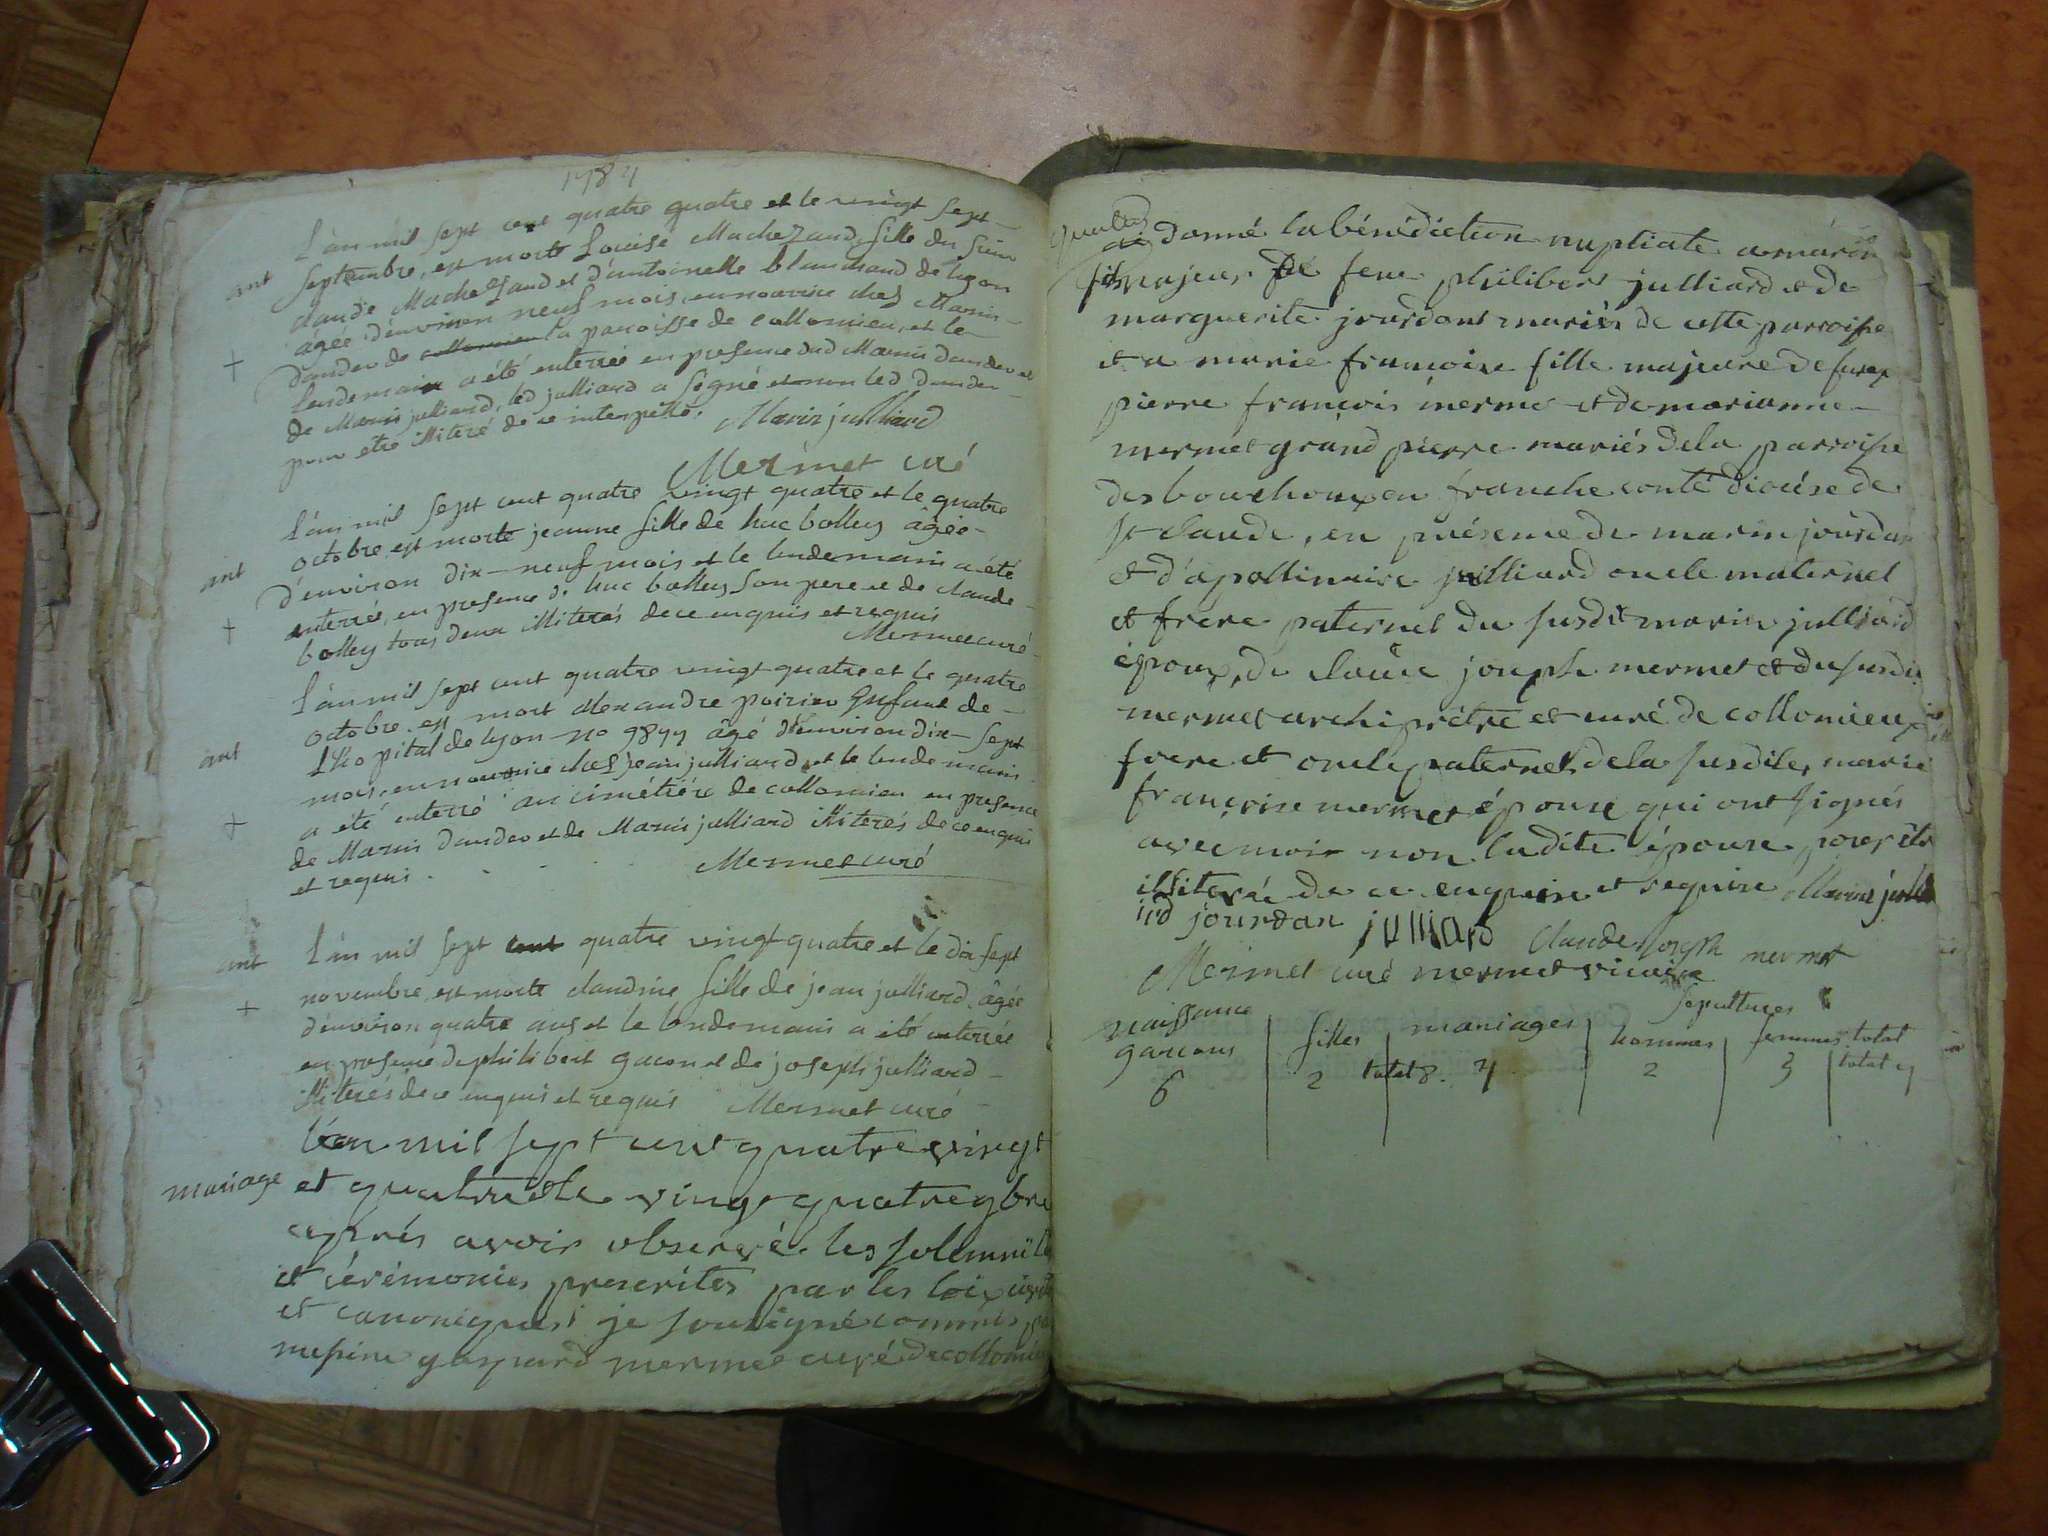 1784
L'an mil sept cent quatre quatre et le vingt sept
septembre, est morte Louise Machezaud, fille du sieur
ant
claude Machezaud et d'antoinette blanchard de lyon
âgée d'environ neuf mois, en nourrice chez Marin
+
dauder de collomieu la paroisse de collomieu, et le
lendemain a été enterrée en presence dud Marin dauder et
de Marin julliard, led julliard a signé et non led dauder
pour etre illiteré de ce interpellé. Marin julliard
Mermet curé
L'an mil sept cent quatre vingt quatre et le quatre
octobre est morte jeanne fille de huc bolley âgée
ant
d'environ dix-neuf mois et le lendemain a été
enterrée, en presence de huc bolley son pere et de claude
+
bolley tous deux illiterés de ce enquis et requis
Mermet curé
L'an mil sept cent quatre vingt quatre et le quatre
octobre est mort alexandre poirier Enfant de
ant
L'hopital de lyon no 9844 âgé d'environ dix-sept
mois, en nourrice chez jean julliard, et le lendemain
+
a été enterré au cimétiére de collomieu en presence
de Marin dauder et de Marin julliard illiterés de ce enquis
et requis. Mermet curé
ant
L'an mil sept cent quatre vingt quatre et le dix sept
+
novembre est morte claudine fille de jean julliard, âgée
d'environ quatre ans et le lendemain a été enterrée
en presence de philibert gucon et de joseph julliard
illiterés de ce enquis et requis Mermet curé
L'an mil sept cent quatre vingt
mariage
et quatre et le vingt quatre 9bre
aprés avoir observé les solemnité
et cérémonies prescrites par les loix
et canoniques, je soussigné commis
messire gaspard mermet curé de collomieu
ai donné la bénédiction nuptiale a marin
fils majeur de feu philibert julliard et de
marguerite jourdant mariés de cette parroisse
et a marie françoise fille majeure de
pierre françois mermet et de marianne
mermet grand pierre mariés de la parroisse
des bouchoux en franche conté diocése de
st claude, en présence de marin jourdan
et d'apollinaire julliard oncle maternel
et frere paternel du susdit marin julliard
époux, de claude joseph mermet et du susdit
mermet archiprêtre et curé de collomieux
frere et oncle paternel de la susdite, marie
françoise mermet épouse qui ont signés
avec moi non ladite épouse pour être
illiterée de ce enquise et requise Marin julli
ard jourdan julliard claude joseph mermet
Mermet curé mermet vicaire
naissance sepultures
garcons filles mariages hommes femmes total
6 2 total 8. 4 2 3 total